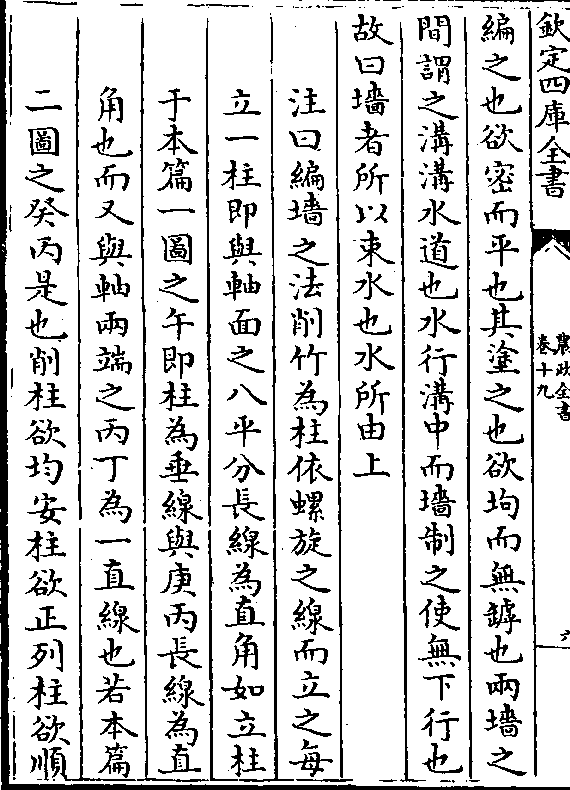 欽定四庫全書
農政全書
卷十九
六
編之也欲密而平也其塗之也欲均而無罅也兩墻之
間謂之溝溝水道也水行溝中而墻制之使無下行也
故曰墻者所以束水也水所由上
注曰編墻之法削竹為柱依螺旋之線而立之每
立一柱即與軸面之八平分長線為直角如立柱
于本篇一圖之午即柱為垂線與庚丙長線為直
角也而又與軸兩端之丙丁為一直線也若本篇
二圖之癸丙是也削柱欲均安柱欲正列柱欲順